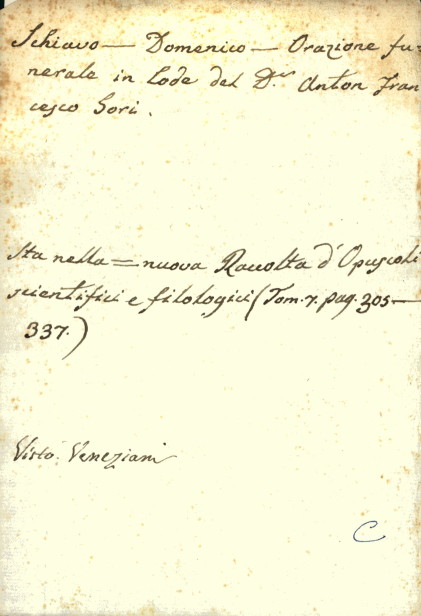 Schiavo — Domenico — Orazione fu=
nerale in Lode del D.r Anton Fran
cesco Gori.
Sta nella = nuova Raccolta d'Opuscoli
scientifici e filologici (Tom. 7. pag. 305 —
337.)
Visto Veneziani
C